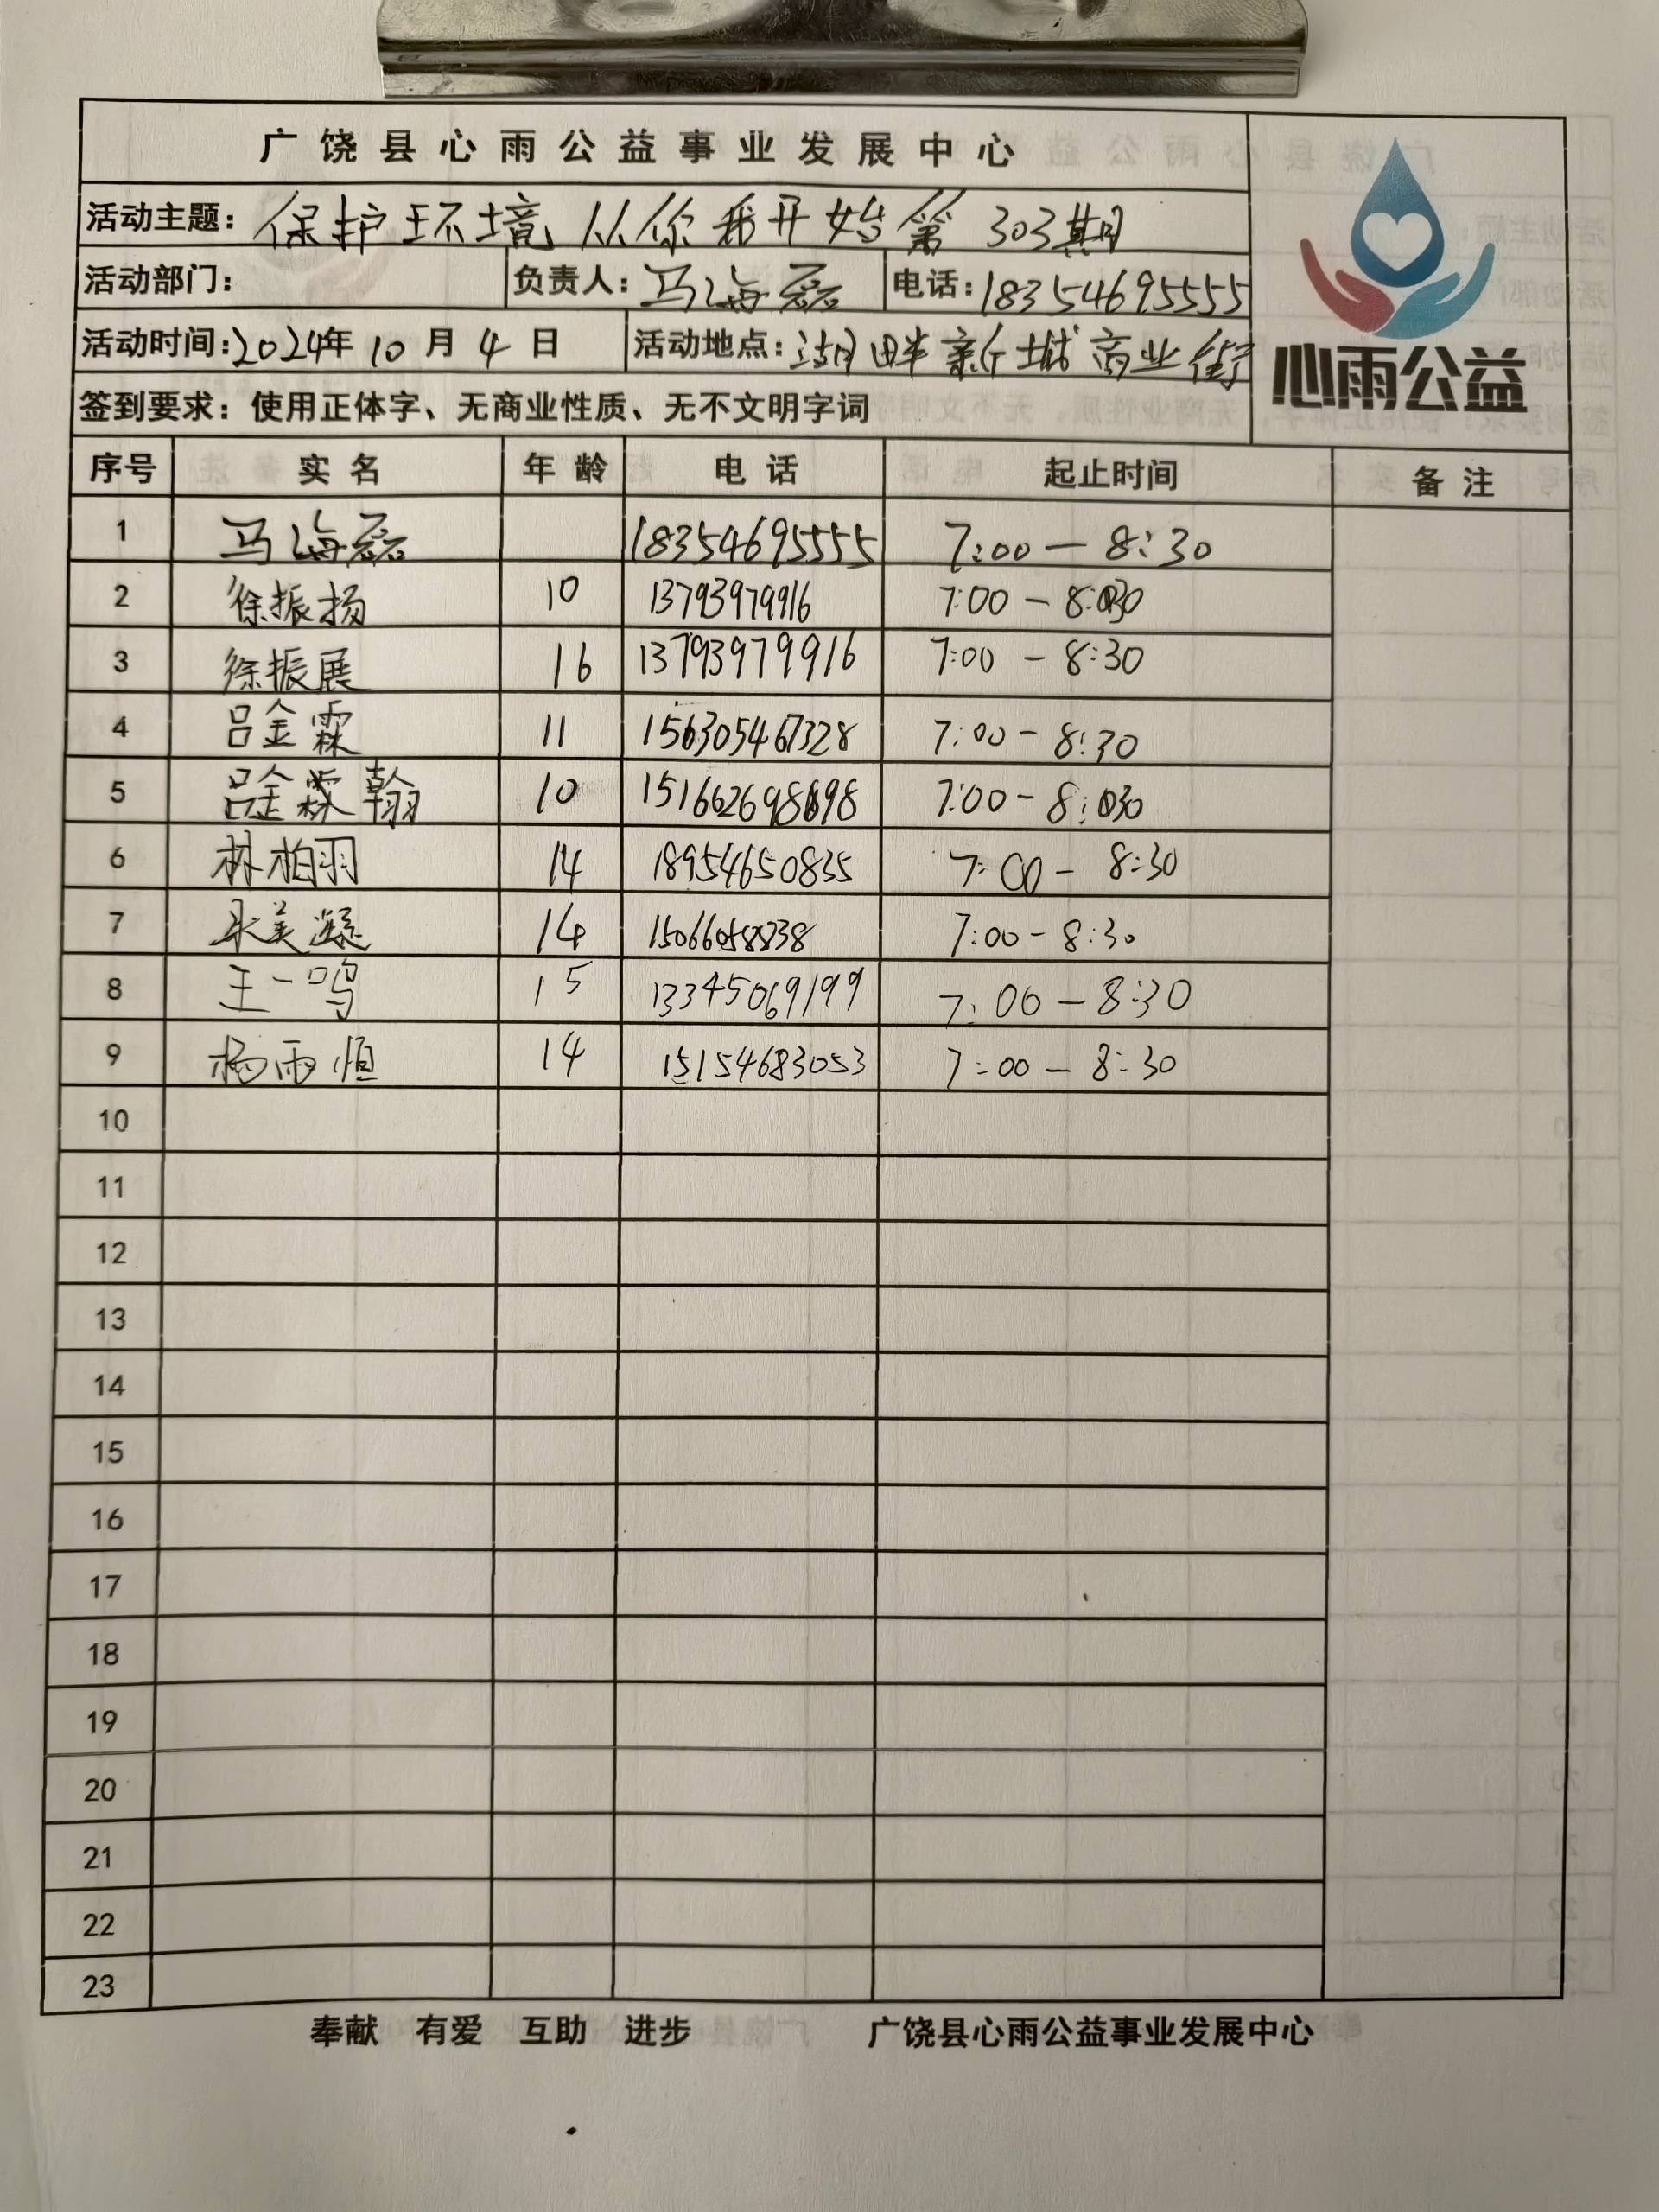 广饶县心雨公益事业发展中心
活动主题：保护环境从你我开始第303期
活动部门： 负责人：马海磊 电话：18354695555
活动时间：2024年10月4日 活动地点：湖畔新城商业街
心雨公益
签到要求：使用正体字、无商业性质、无不文明字词
序号 实名 年龄 电话 起止时间 备注
1 马海磊 18354695555 7:00—8:30
2 徐振扬 10 13793979916 7:00—8:30
3 徐振展 16 13793979916 7:00—8:30
4 吕金霖 11 156305467328 7:00-8:30
5 吕金霖翰 10 7:00-8:30
6 林柏羽 14 18954650835 7:00-8:30
7 美凝 14 15066058838 7:00-8:30
8 王一鸣 15 13345069199 7:00—8:30
9 杨雨恒 14 15154683053 7:00—8:30
10
11
12
13
14
15
16
17
18
19
20
21
22
23
奉献 有爱 互助 进步 广饶县心雨公益事业发展中心